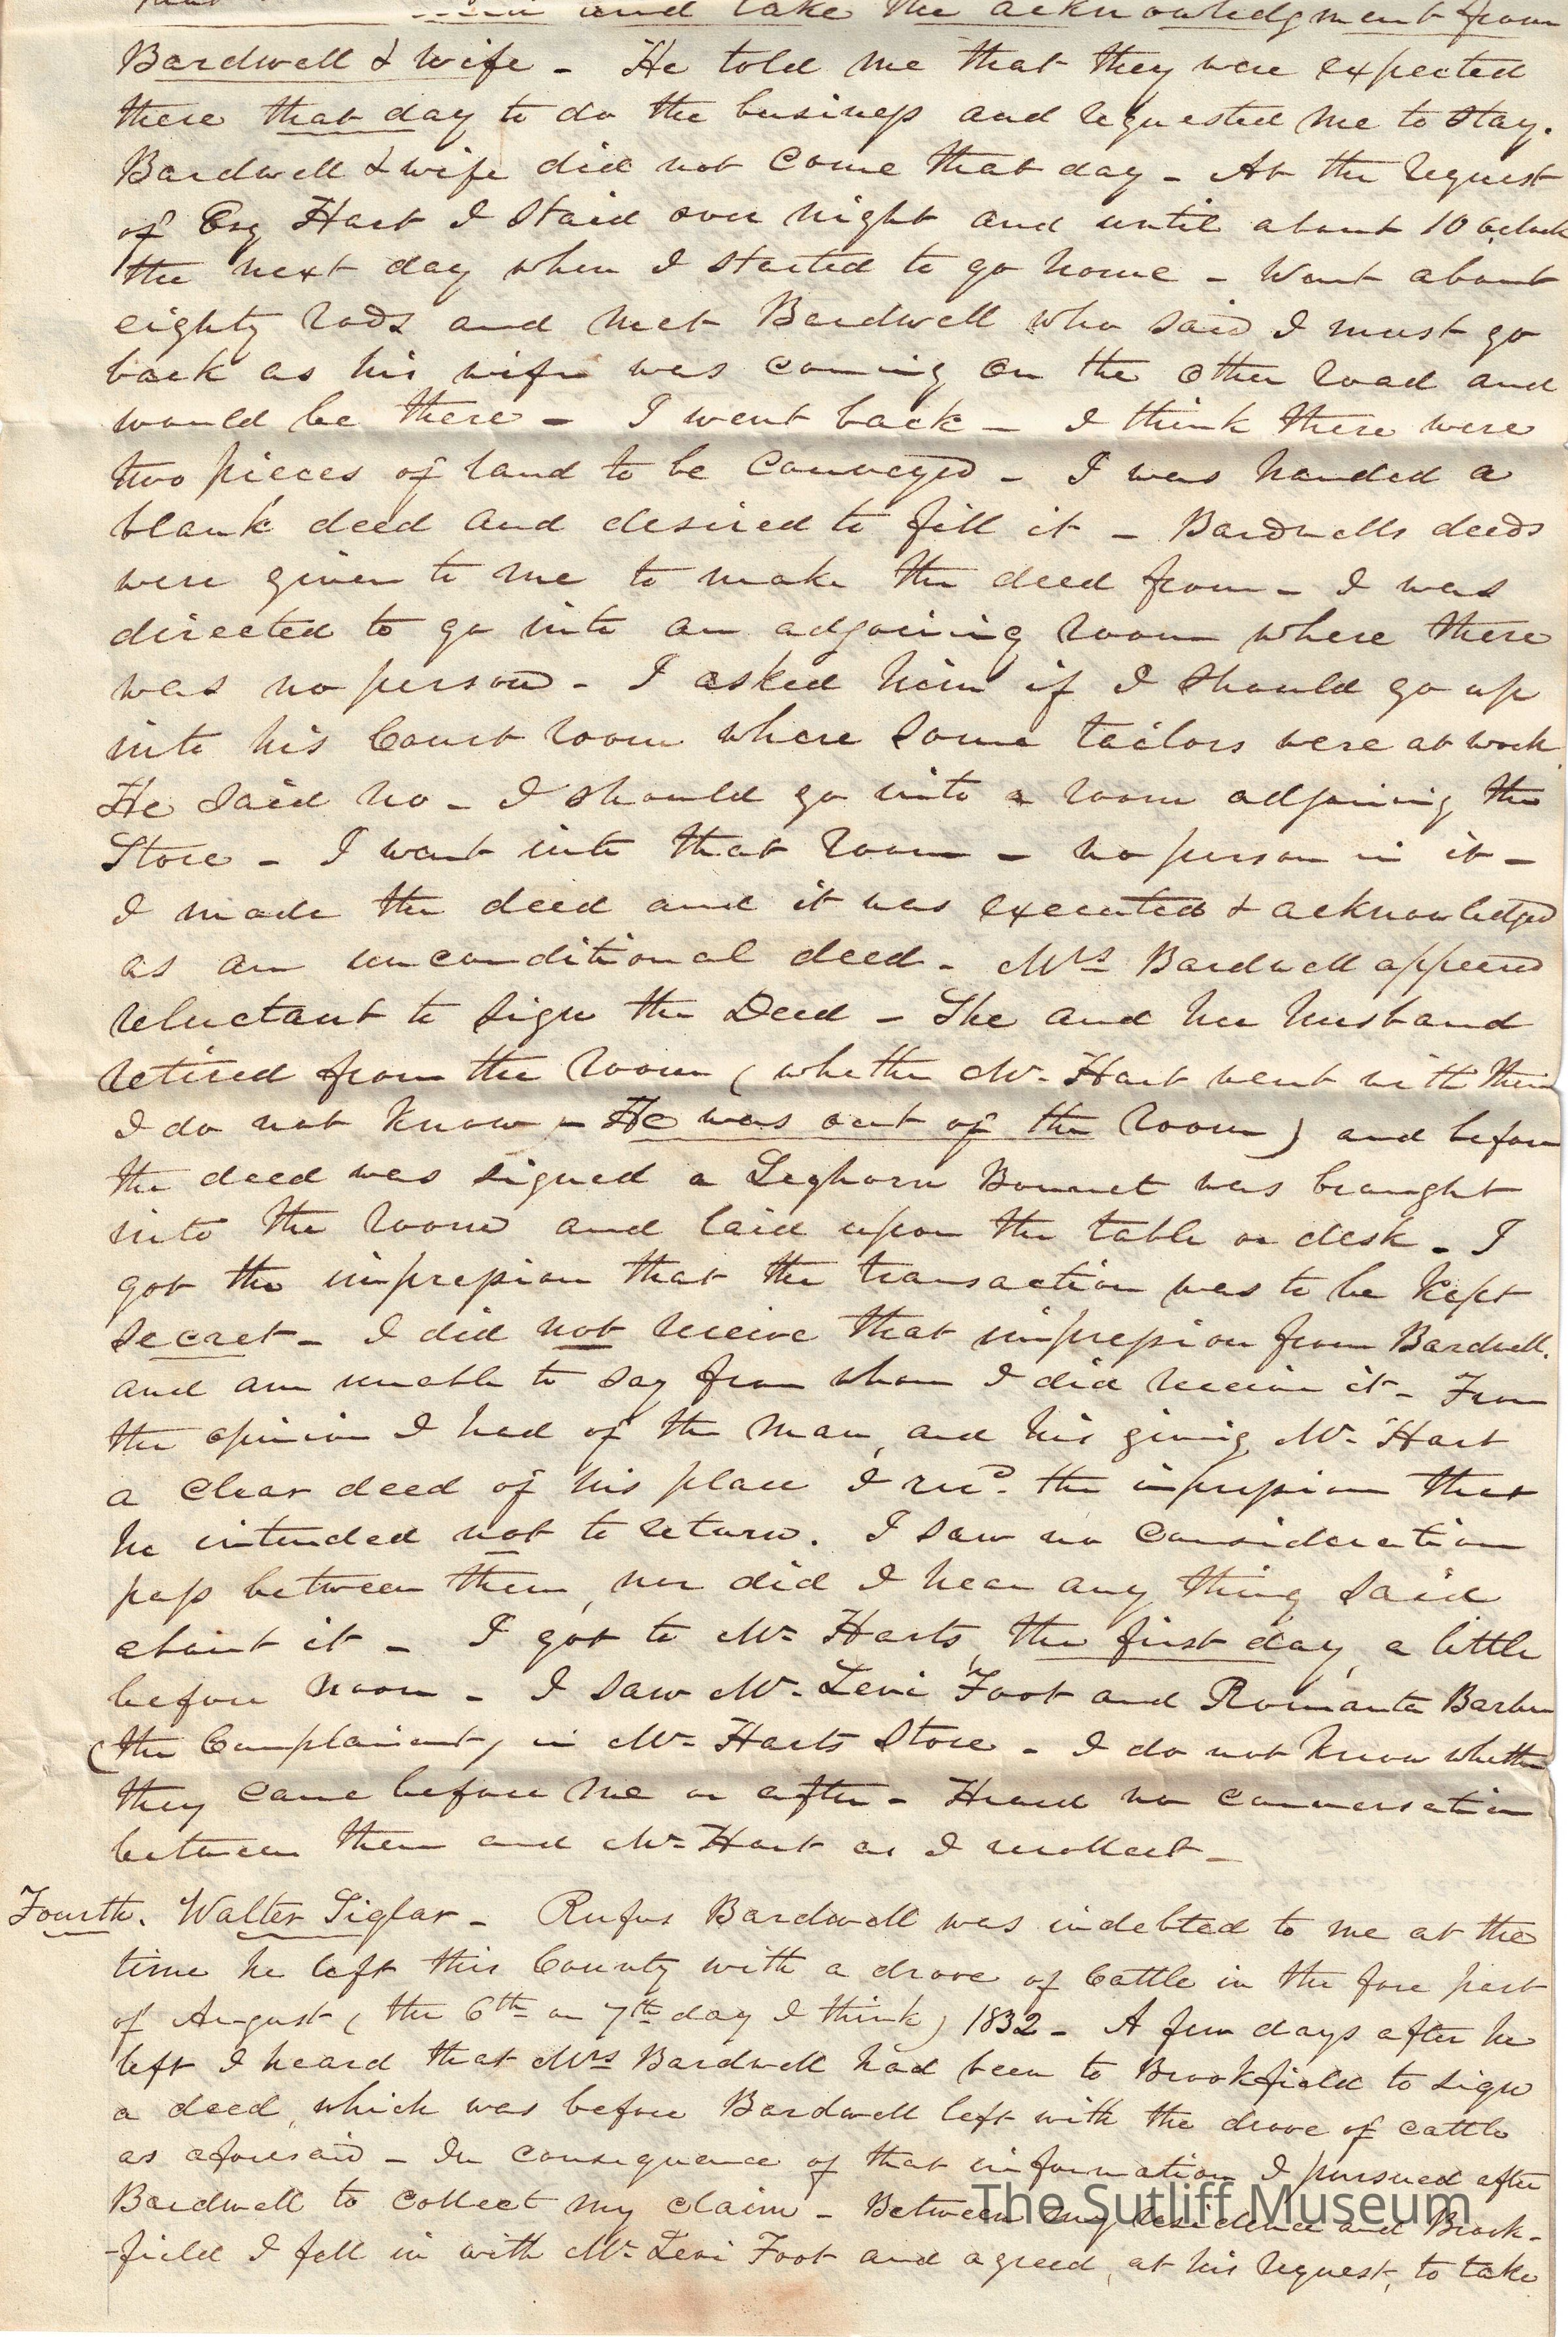 and take the acknowledgment from
Bardwell & wife - He told me that they were expected
there that day to do the business and requested me to stay.
Bardwell & wife did not come that day - At the request
of Esq Hart I staid over night and until about 10 oclock
the next day when I started to go home - Went about
eighty rods and met Bardwell who said I must go
back as his wife was coming on the other road and
would be there - I went back - I think there were
two pieces of land to be conveyed - I was handed a
blank deed and desired to fill it - Bardwells deeds
were given to me to make the deed from - I was
directed to go into an adjoining room where there
was no person - I asked him if I should go up
into his Court room where some tailors were at work
He said no - I should go into a room adjoining the
Store - I went into that room - no person in it -
I made the deed and it was executed & acknowledged
as an unconditional deed - Mrs Bardwell appeared
reluctant to sign the Deed - She and her husband
retired from the room (whether Mr. Hart went with them
I do not know - He was out of the room) and before
the deed was signed a Leghorn Bonnet was brought
into the room and laid upon the table or desk - I
got the impression that the transaction was to be kept
secret - I did not receive that impression from Bardwell.
and am unable to say from whom I did receive it - From
the opinion I had of the man, and his giving Mr. Hart
a clear deed of his place I recd. the impression that
he intended not to return. I saw no consideration
pass between them, nor did I hear any thing said
about it - I got to Mr Harts, the first day, a little
before noon - I saw Mr. Levi Foot and Romanta Barber
(the Complainant, in Mr Harts Store - I do not know whether
they came before me or after - Heard no conversation
between them and Mr Hart as I recollect -
Fourth. Walter Siglar - Rufus Bardwell was indebted to me at the
time he left this County with a drove of Cattle in the fore part
of August (the 6th or 7th day I think) 1832 - A few days after he
left I heard that Mrs Bardwell had been to Brookfield to sign
a deed, which was before Bardwell left with the drove of cattle
as aforesaid - In consequence of that information I pursued after
Bardwell to collect my claim - Between my residence and Brook-
-field I fell in with Mr Levi Foot and agreed, at his request, to take
The Sutliff Museum